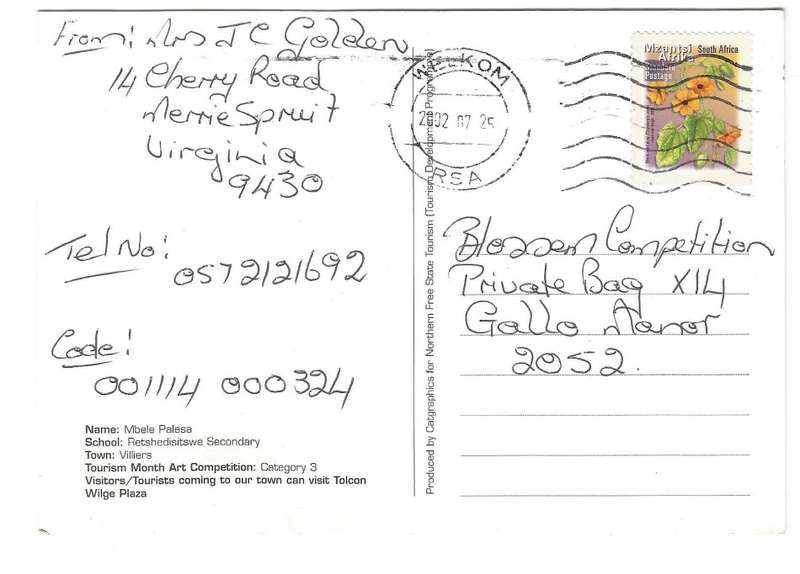 From: Mrs J C Golden
14 Cherry Road
Merrie Spruit
Virginia
9430
Tel No:
0572121692
Code:
001114 000324
Name: Mbele Palesa
School: Retshedisitswe Secondary
Town: Villiers
Tourism Month Art Competition: Category 3
Visitors/Tourists coming to our town can visit Tolcon
Wilge Plaza
Produced by Catgraphics for Northern Free State Tourism (Tourism Development Programme)
WELKOM
2002 07 25
RSA
Mzantsi South Africa
Afrika
Postage
Blossem Competition
Private Bag X14
Gallo Manor
2052.